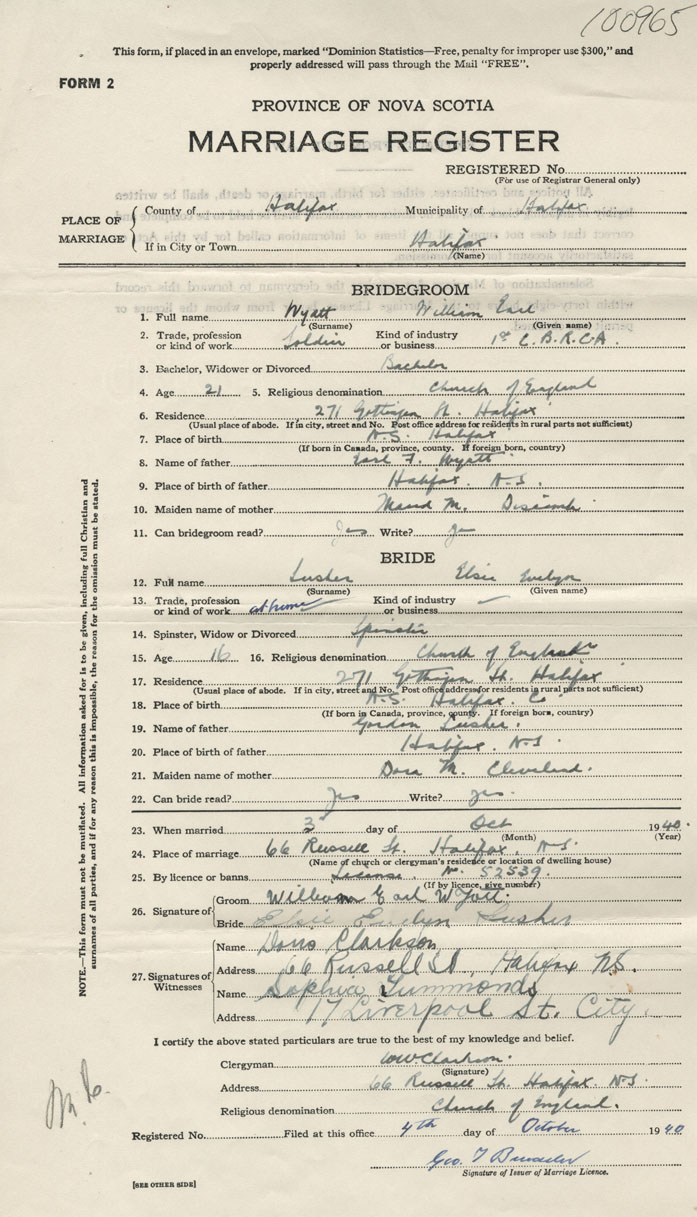 100965
This form, if placed in an envelope, marked "Dominion Statistics—Free, penalty for improper use $300," and
properly addressed will pass through the Mail "FREE".
FORM 2
PROVINCE OF NOVA SCOTIA
MARRIAGE REGISTER
REGISTERED No.
(For use of Registrar General only)
PLACE OF MARRIAGE
County of Halifax Municipality of Halifax
If in City or Town Halifax
(Name)
BRIDEGROOM
1. Full name Wyatt William Earl
(Surname) (Given name)
2. Trade, profession or kind of work Soldier Kind of industry or business 1st C.B.R.C.A.
3. Bachelor, Widower or Divorced Bachelor
4. Age 21 5. Religious denomination Church of England
6. Residence 271 Gottingen St. Halifax
(Usual place of abode. If in city, street and No. Post office address for residents in rural parts not sufficient)
7. Place of birth N.S. Halifax
(If born in Canada, province, county. If foreign born, country)
8. Name of father Earl F. Wyatt
9. Place of birth of father Halifax. N.S.
10. Maiden name of mother Maud M.
11. Can bridegroom read? Yes Write? Yes
BRIDE
12. Full name Lusher Elsie Evelyn
(Surname) (Given name)
13. Trade, profession or kind of work at home Kind of industry or business
14. Spinster, Widow or Divorced Spinster
15. Age 16 16. Religious denomination Church of England
17. Residence 271 Gottingen St. Halifax
(Usual place of abode. If in city, street and No. Post office address for residents in rural parts not sufficient)
18. Place of birth N.S. Halifax C
(If born in Canada, province, county. If foreign born, country)
19. Name of father Gordon Lusher.
20. Place of birth of father Halifax. N.S.
21. Maiden name of mother Dora M. Cleveland.
22. Can bride read? Yes Write? Yes.
23. When married 3 day of Oct 1940.
(Month) (Year)
24. Place of marriage 66 Russell St. Halifax. N.S.
(Name of church or clergyman's residence or location of dwelling house)
25. By licence or banns License No. 52539.
(If by licence, give number)
26. Signature of
Groom William Earl Wyatt.
Bride Elsie Evelyn Lusher
27. Signatures of Witnesses
Name Doris Clarkson
Address 66 Russell St, Halifax NS.
Name Sophia Tummonds
Address 17 Liverpool St. City.
I certify the above stated particulars are true to the best of my knowledge and belief.
Clergyman WW Clarkson.
(Signature)
Address 66 Russell St. Halifax. N.S.
Religious denomination Church of England.
Registered No. Filed at this office 4th day of October 1940
Geo. T
Signature of Issuer of Marriage Licence.
[SEE OTHER SIDE]
NOTE.—This form must not be mutilated. All information asked for is to be given, including full Christian and
surnames of all parties, and if for any reason this is impossible, the reason for the omission must be stated.